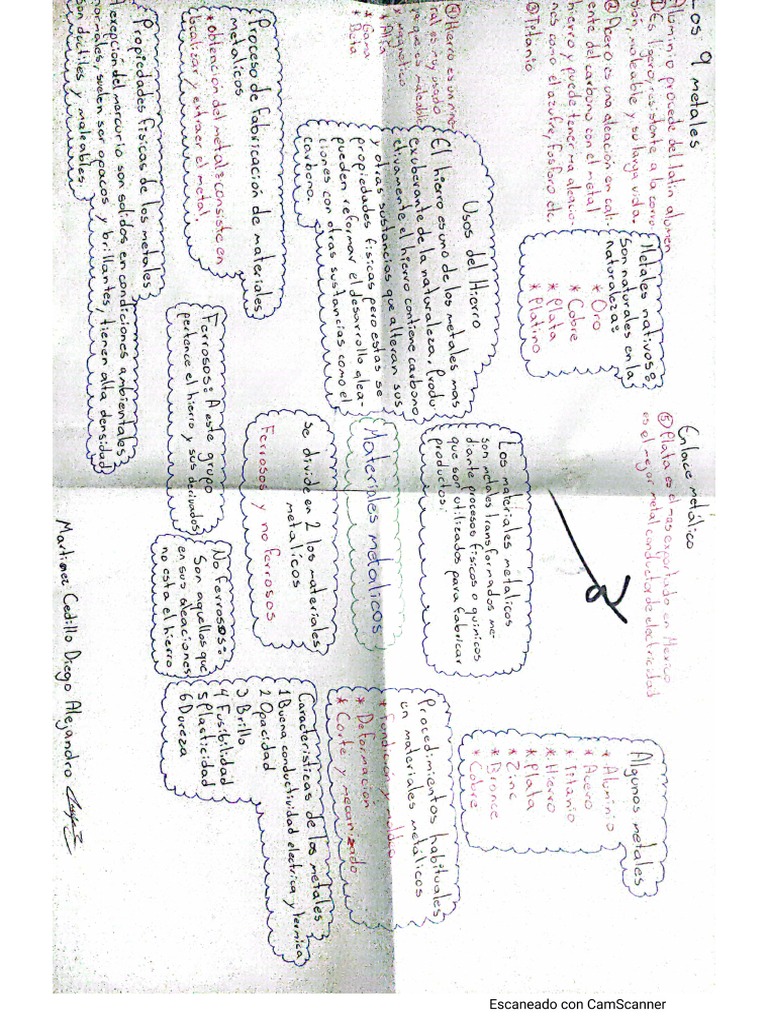 Los 9 metales
Aluminio procede del latin alumen
①Es ligero, resistente a la corro
sion, moleable y su larga vida.
②Acero es una aleación en cali-
ente del carbono con el metal
hierro y puede tener ma aleacio-
nes como el azufre, fosforo etc.
③Titanio
④Hierro es un mine
ral es muy usado
ya que es maleable
* Magnetico
* Alfa
* Gama
* Beta
Metales nativos:
Son naturales en la
naturaleza:
* Oro
* Cobre
* Plata
* Platino
Enlace metálico
⑤ Plata es el mas exportado en Mexico
es el mejor metal conductor de electricidad
Algunos metales
* Aluminio
* Acero
* Titanio
* Hierro
* Plata
* Zinc
* Bronce
* Cobre
Usos del Hierro
El hierro es uno de los metales mas
exuberante de la naturaleza, Produ
ctivamente el hierro contiene carbono
y otras sustancias que alteran sus
propiedades fisicas pero estas se
pueden reformar el desarrollo alea-
ciones con otras sustancias como el
carbono.
Los materiales metalicos
son metales transformados me-
diante procesos fisicos o quimicos
que son utilizados para fabricar
productos:
Materiales metalicos
Procedimientos habituales
en materiales metálicos
* Fundición y moldeo
* Deformacion
* Corte y mecanizado
Proceso de fabricación de materiales
metalicos
* obtención del metal: consiste en
localizar y extraer el metal
Se divide en 2 los materiales
metalicos
Ferrosos y no ferrosos
Ferrosos: A este grupo
pertence el hierro y sus derivados
No ferrosos:
Son aquellos que
en sus aleaciones
no esta el hierro
Caracteristicas de los metales
1 Buena conductividad electrica y termica
2 Opacidad
3 Brillo
4 Fusibilidad
5 Plasticidad
6 Dureza
Propiedades fisicas de los metales
Aexepción del mercurio son solidos en condiciones ambientales
normales, suelen ser opacos y brillantes, tienen alta densidad
son ductiles y maleables.
Martinez Cedillo Diego Alejandro
Escaneado con CamScanner